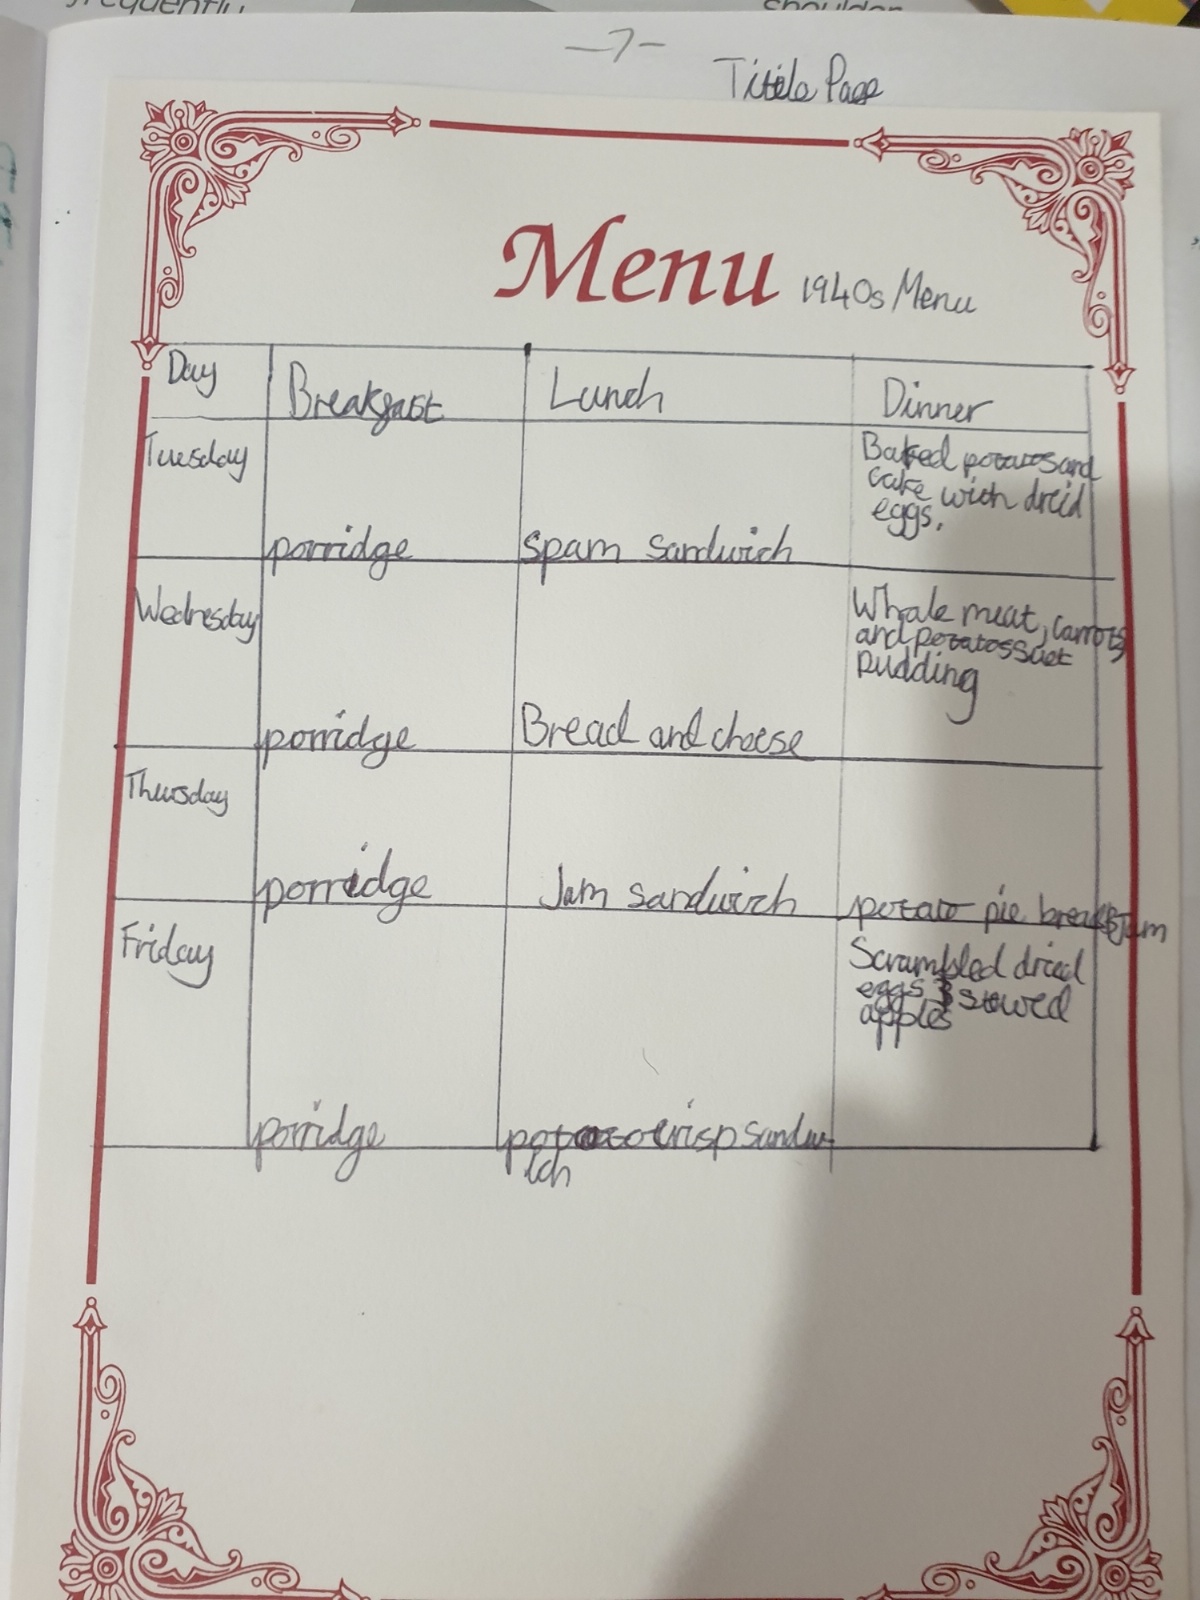 frequently
shoulder
-7-
Titile Page
Menu 1940s Menu
Day Breakfast Lunch Dinner
Tuesday porridge Spam sandwich Baked potatos and
cake with dreid
eggs.
Wednesday porridge Bread and cheese Whale meat, carrots
and potatos suet
pudding
Thursday porridge Jam sandwich potato pie bread & Jam
Friday porridge potato crisp sandw
ich
Scrambled dried
eggs & stewed
apples